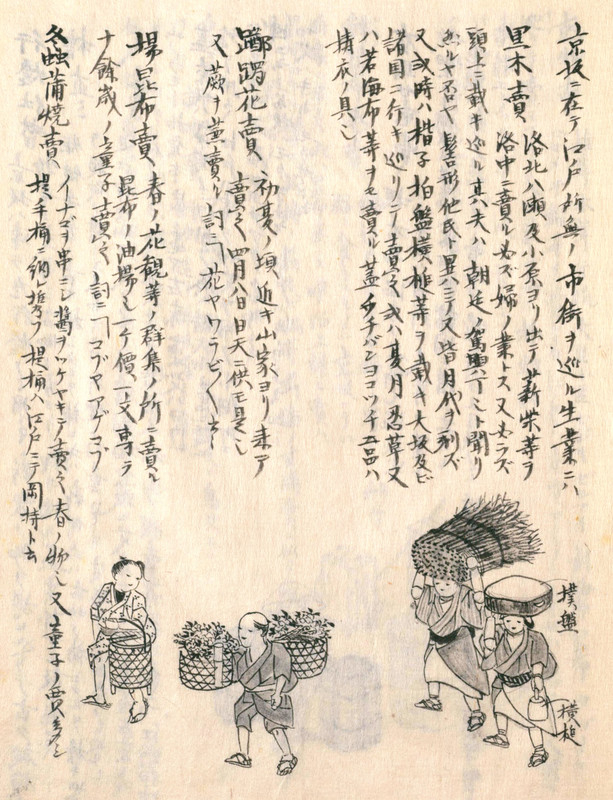 京坂ニ在テ江戸ニ所無ノ市街ヲ巡ル生業ニハ
黒木賣 洛北八瀬及小原ヨリ出テ薪柴等ヲ
洛中ニ賣ル必ズ婦ノ業トス又必ラズ
頭上ニ戴キ巡ル其夫ハ朝廷ノ駕輿丁ミト聞リ
然ルヤ否ヤ髻形他民ト異ニテ又皆月代ヲ剃ズ
又或時ハ楷子拍盤横槌等ヲ戴キ大坂及ビ
諸国ニ行キ巡リテ賣之或ハ夏月忍草又
ハ若海布等ヲモ賣ル蓋キヌバンヨコツチ五品ハ
擣衣ノ具也
躑躅花賣 初夏ノ頃近キ山家ヨリ来テ
賣之四月八日日天ニ供モ是也
又蕨ヲ兼賣ル詞ニ曰花ヤワラビノ〱ト云
揚昆布賣 春ノ花観等ノ群集ノ所ニ賣ル
昆布ノ油揚也一ケ價一文専ラ
十餘歳ノ童子賣之詞ニ曰コブヤアゲコブ
螽蒲焼賣 イナゴヲ串ニシ醤ヲツケヤキテ賣之春ノ物也又童子ノ賣多シ
提手桶ニ納ル提桶ハ江戸ニテ岡持ト云
撲盤
横槌